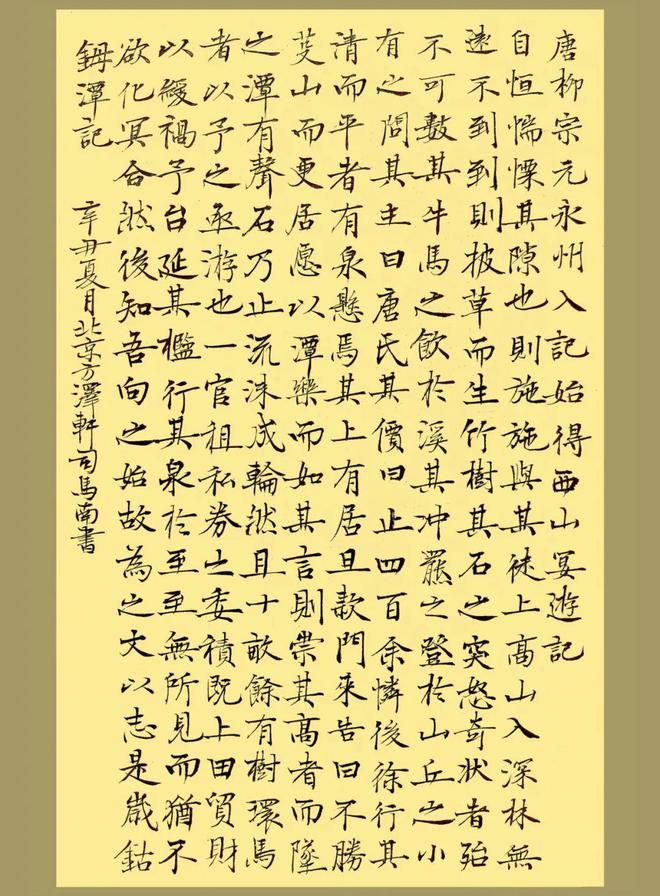 唐柳宗元永州入記始得西山宴遊記
自恒惴慄其隙也則施施與其徒上高山入深林無
遠不到到則披草而生竹樹其石之突怒奇狀者殆
不可數其牛馬之飲於溪其冲羆之登於山丘之小
有之問其主曰唐氏其價曰止四百余憐後徐行其
清而平者有泉懸焉其上有居旦款門來告曰不勝
芟山而更居愿以潭樂而如其言則崇其高者而墜
之潭有聲石乃止流沫成輪然且十畝餘有樹環馬
者以予之亟游也一官租私券之委積既上田貿財
以緩禍予台延其檻行其泉於至至無所見而猶不
欲化冥合然後知吾向之始故為之文以志是歲鈷
鉧潭記 辛丑夏月北京方澤軒司馬南書